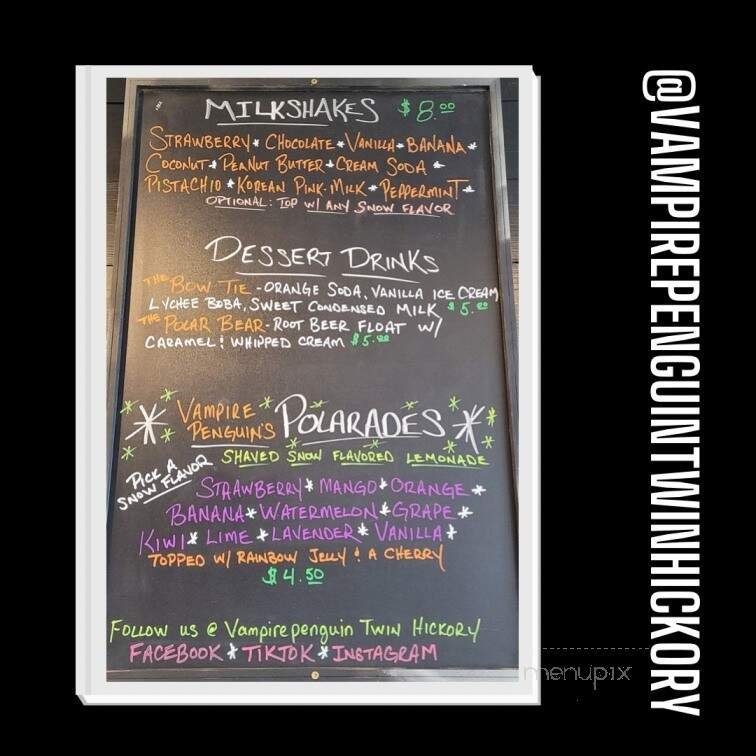 MILKSHAKES $8.00
STRAWBERRY * CHOCOLATE * VANILLA * BANANA *
COCONUT * PEANUT BUTTER * CREAM SODA *
PISTACHIO * KOREAN PINK MILK * PEPPERMINT *
OPTIONAL: TOP W/ ANY SNOW FLAVOR
DESSERT DRINKS
THE BOW TIE - ORANGE SODA, VANILLA ICE CREAM
LYCHEE BOBA, SWEET CONDENSED MILK $5.00
THE POLAR BEAR - ROOT BEER FLOAT W/
CARAMEL & WHIPPED CREAM $5.00
VAMPIRE PENGUIN'S POLARADES
SHAVED SNOW FLAVORED LEMONADE
PICK A SNOW FLAVOR
STRAWBERRY * MANGO * ORANGE *
BANANA * WATERMELON * GRAPE *
KIWI * LIME * LAVENDER * VANILLA *
TOPPED W/ RAINBOW JELLY & A CHERRY
$4.50
FOLLOW US @ Vampirepenguin TWIN HICKORY
FACEBOOK * TIKTOK * INSTAGRAM
@VAMPIREPENGUINTWINHICKORY
menupix